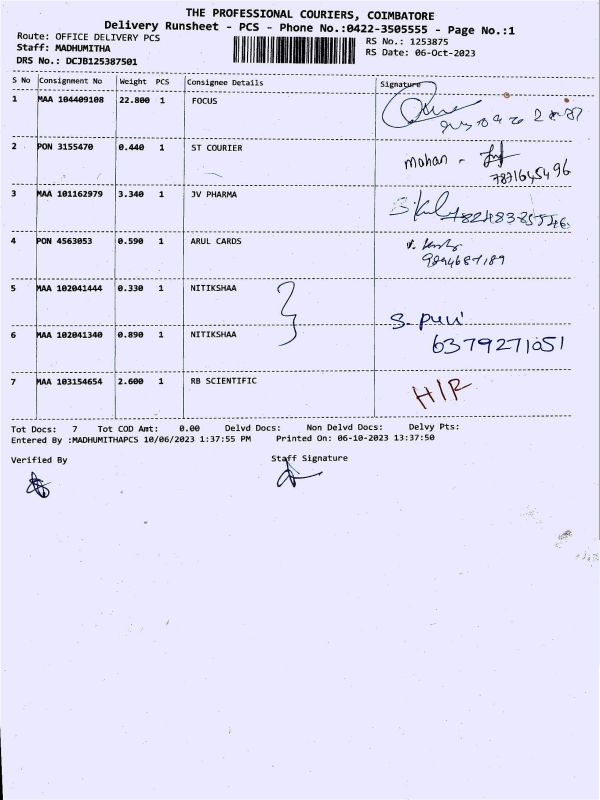 THE PROFESSIONAL COURIERS, COIMBATORE
Delivery Runsheet - PCS - Phone No.:0422-3505555 - Page No.:1
Route: OFFICE DELIVERY PCS
Staff: MADHUMITHA
DRS No.: DCJB125387501
RS No.: 1253875
RS Date: 06-Oct-2023
S No Consignment No Weight PCS Consignee Details Signature
1 MAA 104409108 22.800 1 FOCUS
2 PON 3155470 0.440 1 ST COURIER mohan -
7871645496
3 MAA 101162979 3.340 1 JV PHARMA
4 PON 4563053 0.590 1 ARUL CARDS
9894687189
5 MAA 102041444 0.330 1 NITIKSHAA
S. puvi
6 MAA 102041340 0.890 1 NITIKSHAA 6379271051
7 MAA 103154654 2.600 1 RB SCIENTIFIC H/R
Tot Docs: 7 Tot COD Amt: 0.00 Delvd Docs: Non Delvd Docs: Delvy Pts:
Entered By :MADHUMITHAPCS 10/06/2023 1:37:55 PM Printed On: 06-10-2023 13:37:50
Verified By Staff Signature